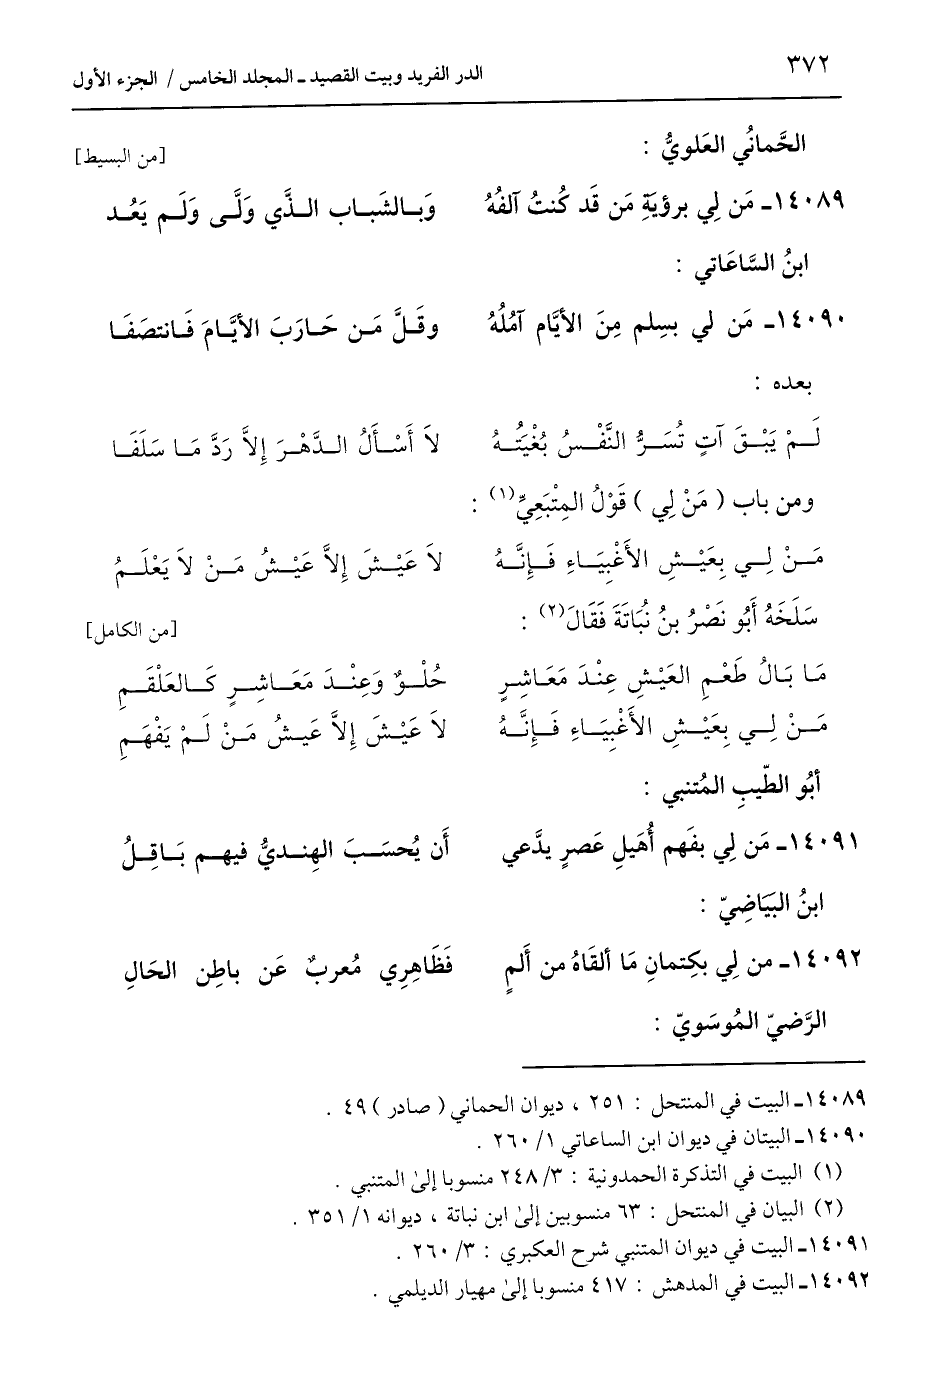 ٣٧٢ الدر الفريد وبيت القصيد ـ المجلد الخامس / الجزء الأول
الحَّماني العَلويُّ : [من البسيط]
١٤٠٨٩ـ مَن لِي برؤيَةِ مَن قَد كُنتُ آلفُهُ وَبالشَبابِ الذَّي وَلَّى وَلَم يَعُد
ابنُ السَّاعَاتي :
١٤٠٩٠ـ مَن لي بسِلمٍ مِنَ الأيَّامِ آمُلُهُ وقَلَّ مَن حَارَبَ الأيَّامَ فَانتصَفَا
بعده :
لَمْ يَبْقَ آتٍ تُسَرُّ النَّفْسُ بُغْيَتُهُ لاَ أَسْأَلُ الدَّهْرَ إلاَّ رَدَّ مَا سَلَفَا
ومن باب ( مَنْ لِي ) قَوْلُ المِتْبَعِيِّ(١) :
مَنْ لِي بِعَيْشِ الأَغْبِيَاءِ فَإنَّهُ لاَ عَيْشَ إلاَّ عَيْشُ مَنْ لاَ يَعْلَمُ
سَلَخَهُ أَبُو نَصْرُ بنُ نُبَاتَةَ فَقَالَ(٢) : [من الكامل]
مَا بَالُ طَعْمِ العَيْشِ عِنْدَ مَعَاشِرٍ حُلْوٌ وَعِنْدَ مَعَاشِرٍ كَالعَلْقَمِ
مَنْ لِي بِعَيْشِ الأَغْبِيَاءِ فَإنَّهُ لاَ عَيْشَ إلاَّ عَيشُ مَنْ لَمْ يَفْهَمِ
أبُو الطّيبِ المُتنبي :
١٤٠٩١ـ مَن لِي بفَهم أُهَيلِ عَصرٍ يدَّعي أَن يُحسَبَ الهِنديُّ فيهم بَاقِلُ
ابنُ البَيَاضِيّ :
١٤٠٩٢ـ من لِي بكِتمانِ مَا ألقَاهُ من ألَمٍ فَظَاهِرِي مُعربٌ عَن باطِن الحَالِ
الرَّضيّ المُوسَويّ :
١٤٠٨٩ـ البيت في المنتحل : ٢٥١ ، ديوان الحماني ( صادر ) ٤٩ .
١٤٠٩٠ـ البيتان في ديوان ابن الساعاتي ١/ ٢٦٠ .
(١) البيت في التذكرة الحمدونية : ٣/ ٢٤٨ منسوبا إلىٰ المتنبي .
(٢) البيان في المنتحل : ٦٣ منسوبين إلىٰ ابن نباتة ، ديوانه ١/ ٣٥١ .
١٤٠٩١ـ البيت في ديوان المتنبي شرح العكبري : ٣/ ٢٦٠ .
١٤٠٩٢ـ البيت في المدهش : ٤١٧ منسوبا إلىٰ مهيار الديلمي .